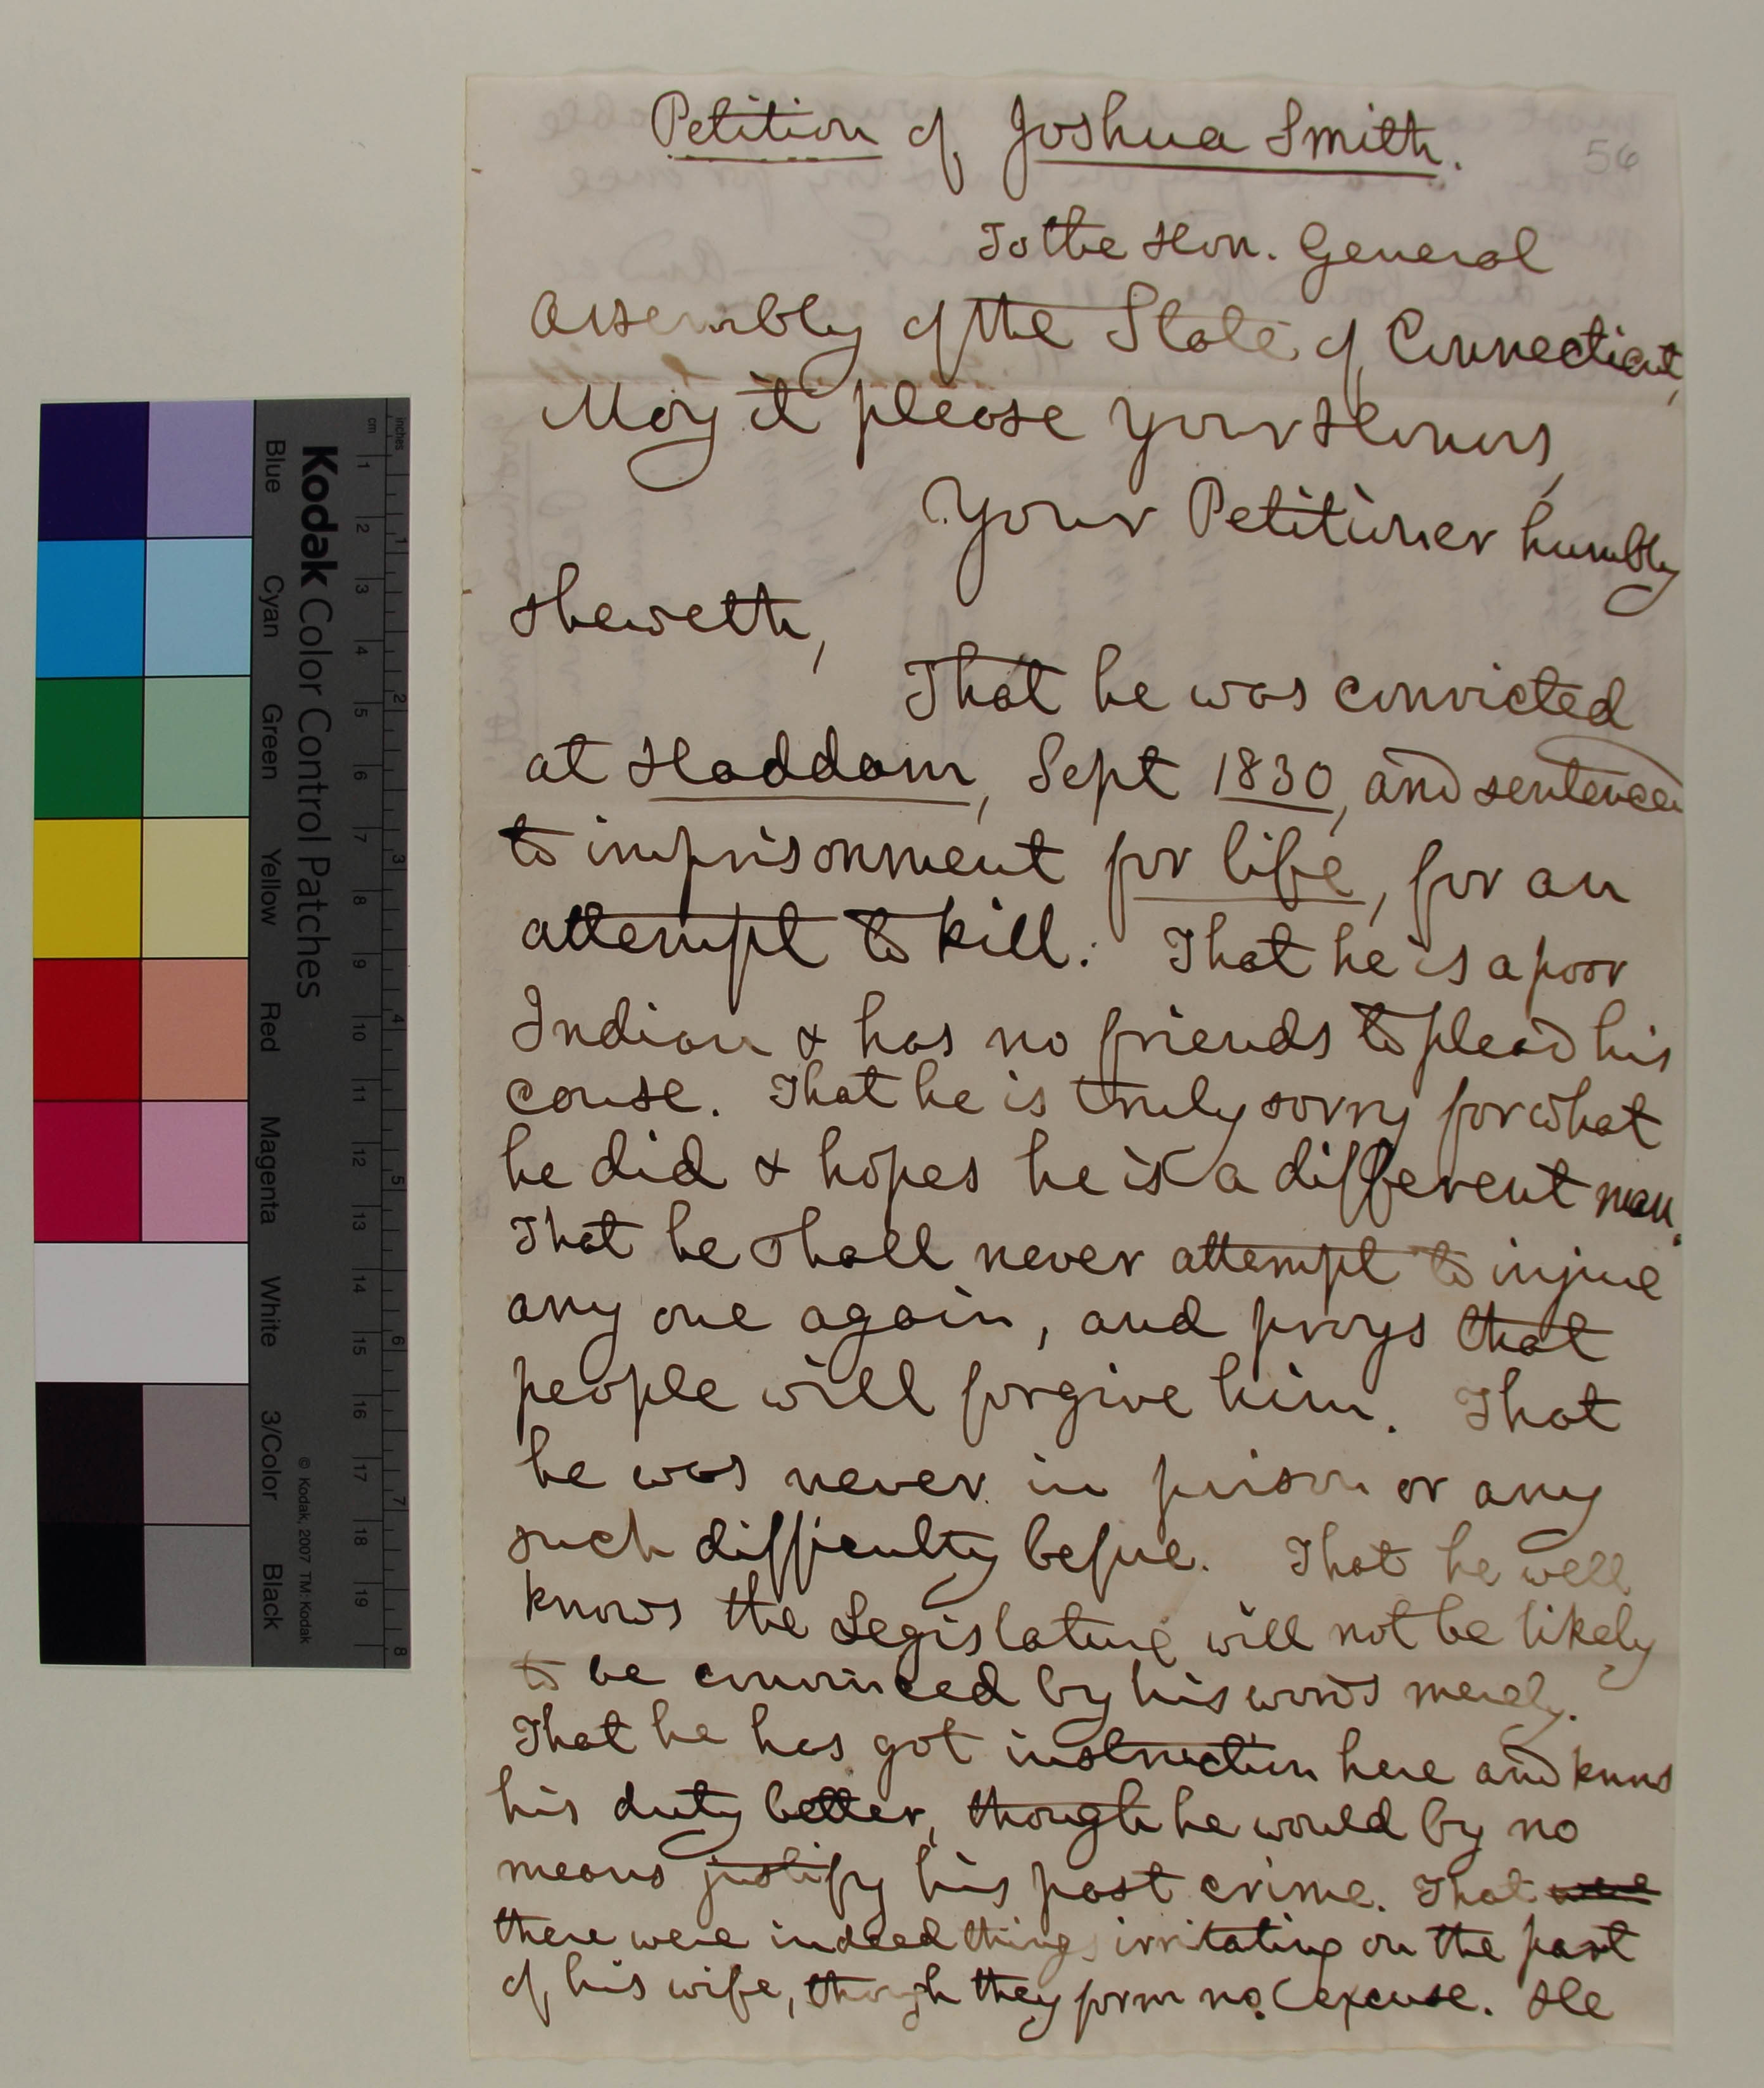 Petition of Joshua Smith.
56
To the Hon. General
Assembly of the State of Connecticut,
May it please your Honors,
Your Petitioner humbly
sheweth,
That he was convicted
at Haddam, Sept 1830, and sentenced
to imprisonment for life, for an
attempt to kill. That he is a poor
Indian & has no friends to plead his
cause. That he is truly sorry for what
he did & hopes he is a different man.
That he shall never attempt to injure
any one again, and prays that
people will forgive him. That
he was never in prison or any
such difficulty before. That he well
knows the Legislature will not be likely
to be convinced by his words merely.
That he has got instruction here and knows
his duty better, though he would by no
means justify his past crime. That were
there were indeed things irritating on the part
of his wife, though they form no excuse. He
Kodak Color Control Patches
Blue
Cyan
Green
Yellow
Red
Magenta
White
3/Color
Black
© Kodak, 2007 TM: Kodak
cm 1 2 3 4 5 6 7 8 9 10 11 12 13 14 15 16 17 18 19
inches 1 2 3 4 5 6 7 8